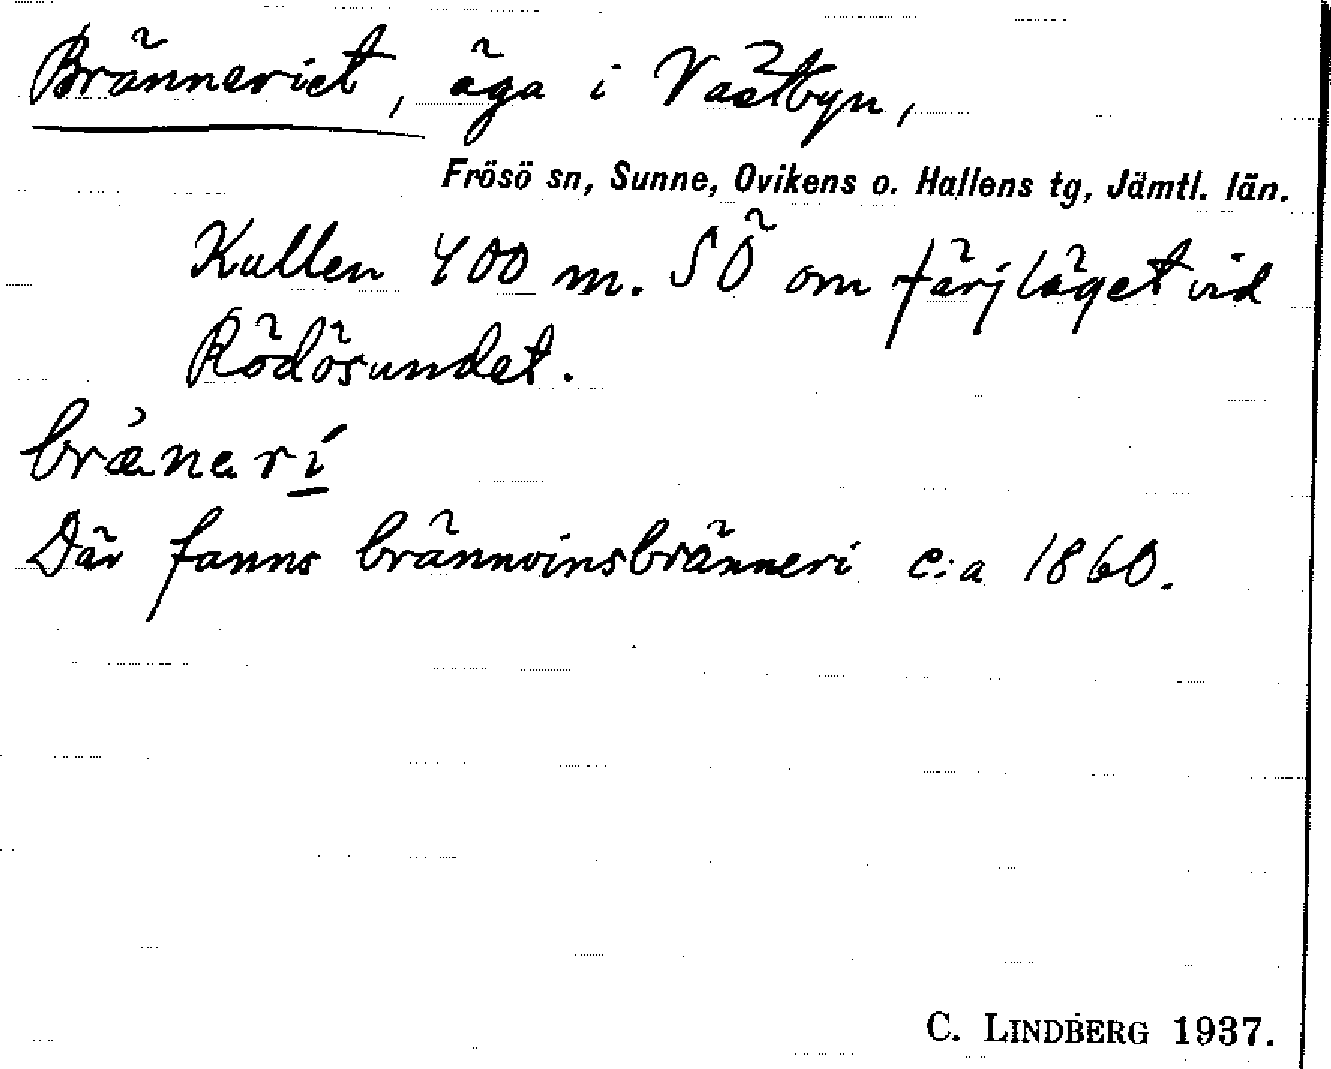 Bränneriet, äga i Västbyn,
Frösö sn, Sunne, Ovikens o. Hallens tg, Jämtl. län.
Kullen 400 m. SÖ om färjläget vid
Rödösundet.
brǽnerí
Där fanns brännvinsbränneri c:a 1860.
C. LINDBERG 1937.